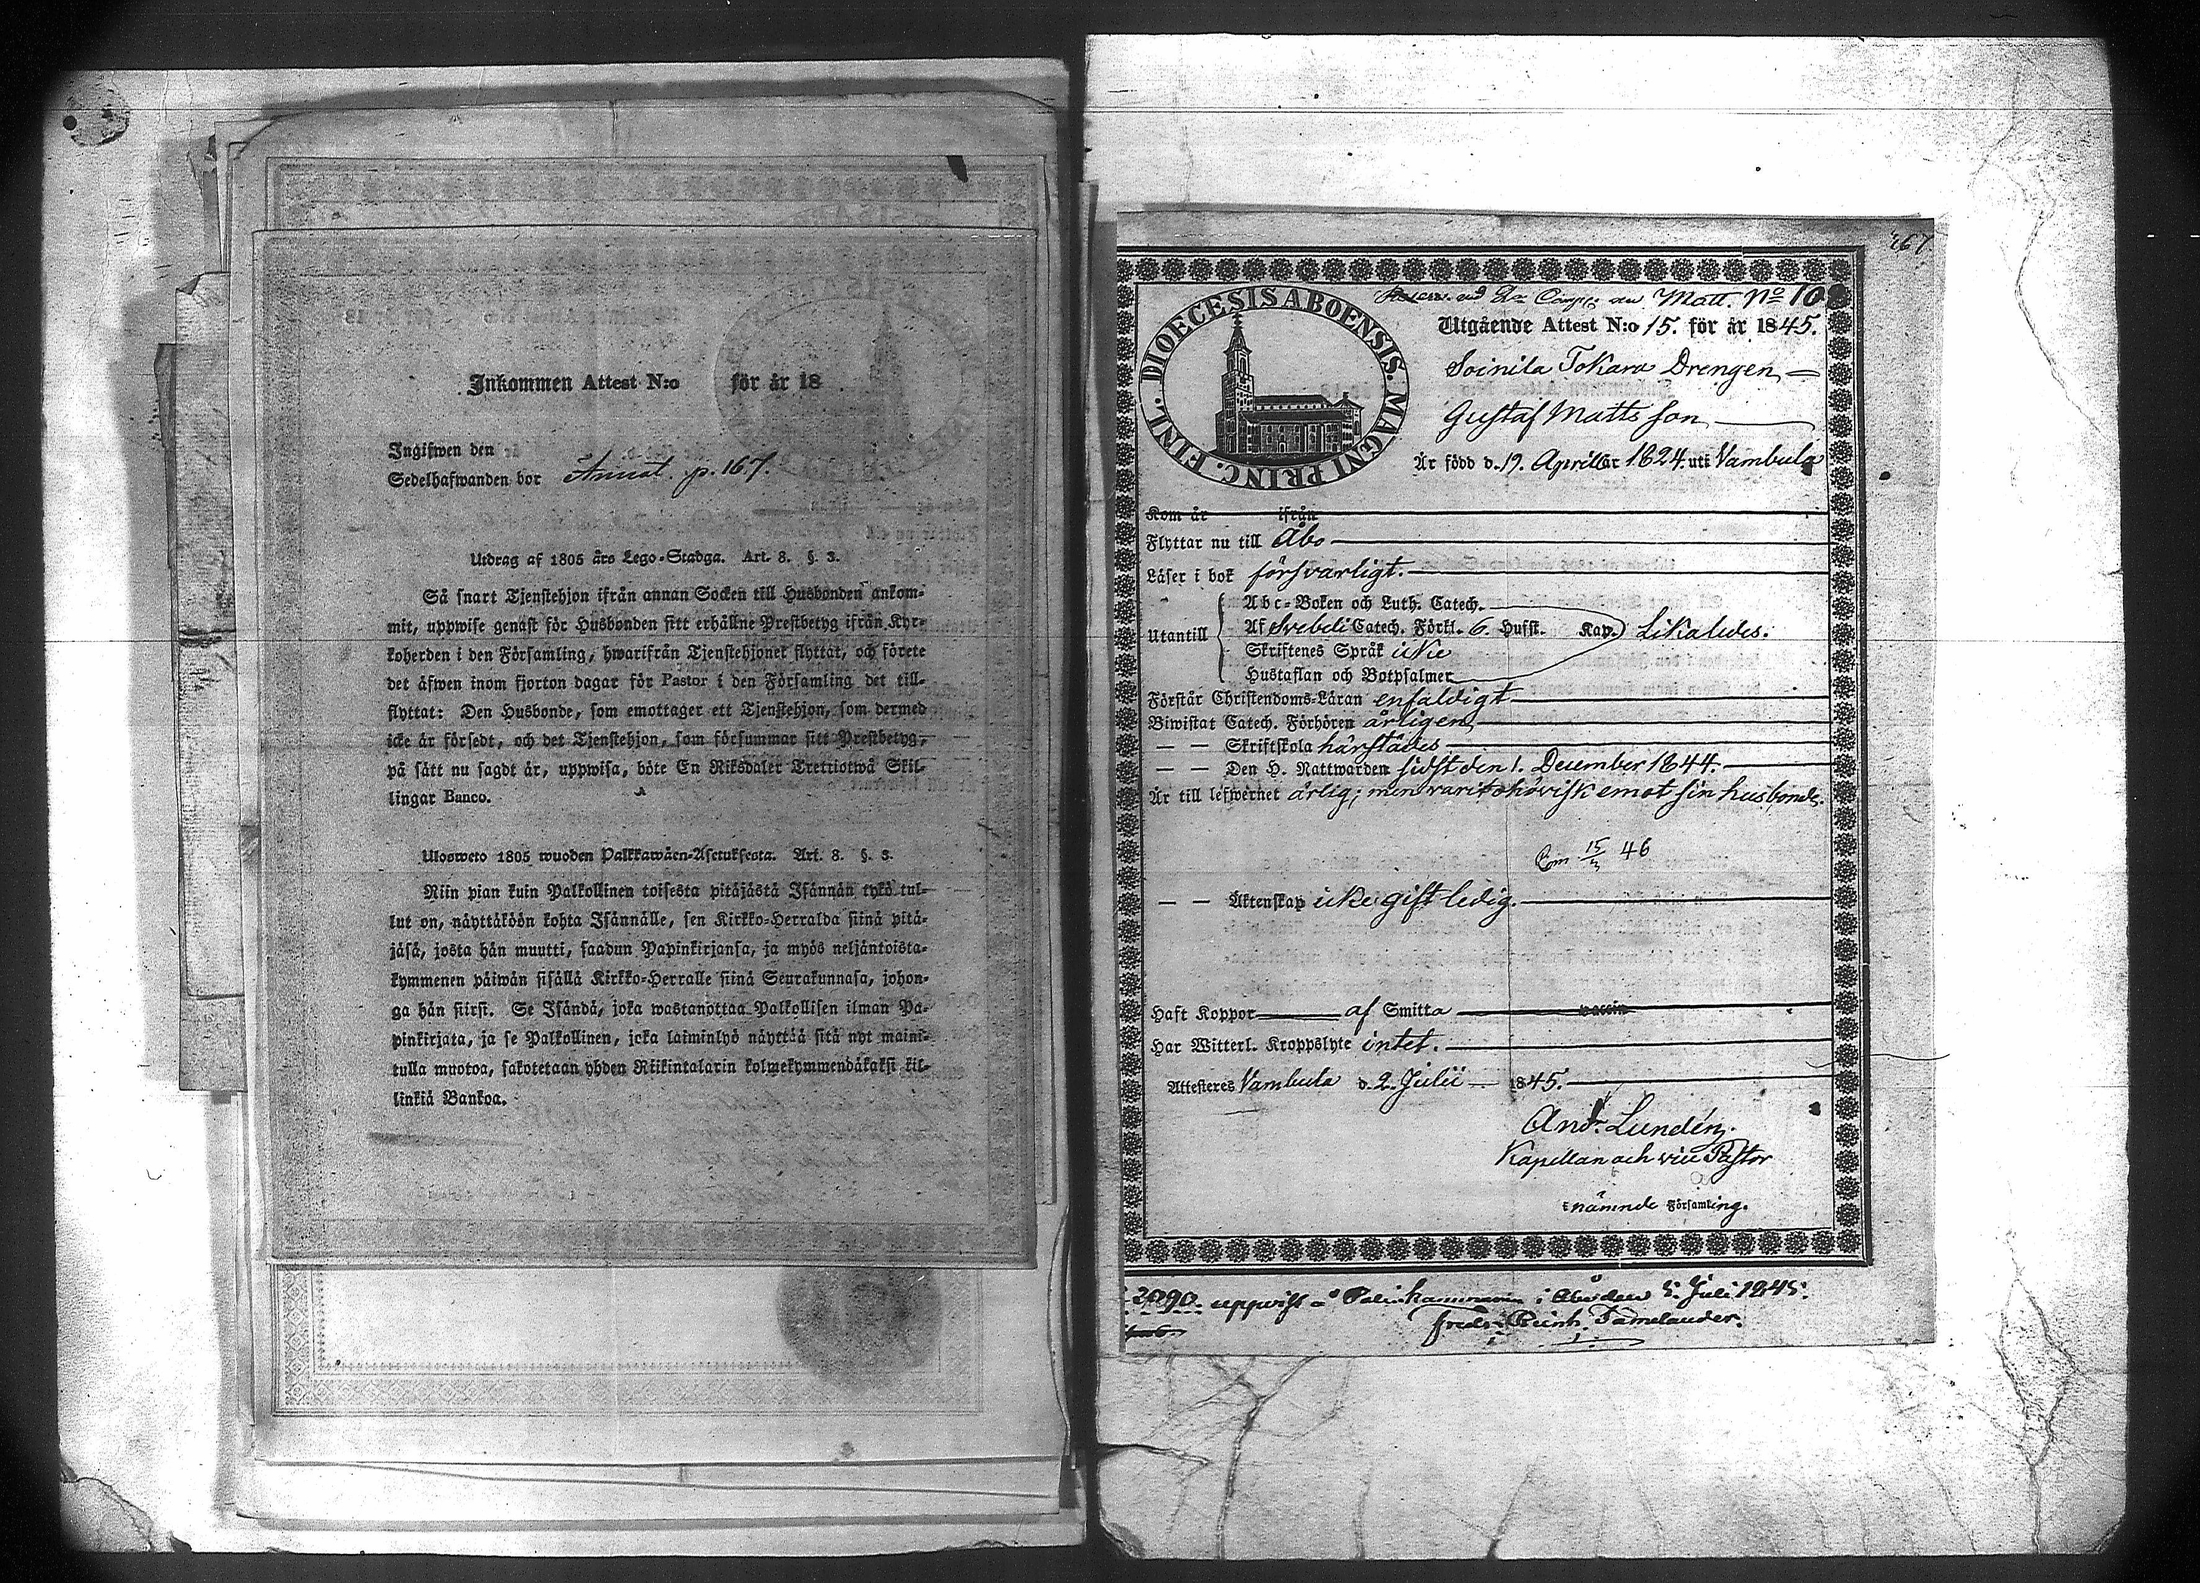 Inkommen Attest N:o för år 18
Ingifwen den
Sedelhafwanden bor Annot. p. 167.
Utdrag af 1805 års Lego-Stadga. Art. 8. §. 3.
Så snart Tjenstehjon ifrån annan Socken till Husbonden ankom-
mit, uppwise genast för Husbonden sitt erhållne Prestbetyg ifrån Kyr-
koherden i den Församling, hwarifrån Tjenstehjonet flyttat, och förete
det äfwen inom fjorton dagar för Pastor i den Församling det till-
flyttat: Den Husbonde, som emottager ett Tjenstehjon, som dermed
icke är försedt, och det Tjenstehjon, som försummar sitt Prestbetyg,
på sätt nu sagdt är, uppwisa, böte En Riksdaler Tretriotwå Skil-
lingar Banco.
Ulosweto 1805 wuoden Palkkawäen-Asetuksesta. Art. 8. §. 3.
Niin pian kuin Palkollinen toisesta pitäjästä Isännän tykö tul-
lut on, näyttäköön kohta Isännälle, sen Kirkko-Herralda siinä pitä-
jäsä, josta hän muutti, saadun Papinkirjansa, ja myös neljäntoista-
kymmenen päiwän sisällä Kirkko-Herralle siinä Seurakunnasa, johon-
ga hän siirsi. Se Isändä, joka wastanottaa Palkollisen ilman Pa-
pinkirjata, ja se Palkollinen, joka laiminlyö näyttää sitä nyt maini-
tulla muotoa, sakotetaan yhden Riikintalarin kolmekymmendäkaksi kil-
linkiä Bankoa.
167
DIOECESIS ABOENSIS. MAGNI PRINC. FINL.
Matt. No 10
Utgående Attest N:o 15. för år 1845.
Soinila Tokara Drengen
Gustaf Matts son
Är född d. 19. April år 1824. uti Vambula
Kom år ifrån
Flyttar nu till Åbo
Läser i bok försvarligt.
Abc-Boken och Luth. Catech.
Utantill Af Svebeli Catech. Förkl. 6. Hufst. Kap. Likaledes.
Skriftenes Språk icke
Hustaflan och Botpsalmer
Förstår Christendoms-Läran enfaldigt
Biwistat Catech. Förhören årligen
— — Skriftskola härstädes
— — Den H. Nattwarden sidst den 1. December 1844.
Är till lefwernet ärlig; men varit ohöfvisk emot sin husbonde.
Kom 15/3 46
— — Äktenskap icke gift ledig.
Haft Koppor af Smitta vaccin
Har Witterl. Kroppslyte intet.
Attesteres Vambula d. 2. Julii 1845.
And. Lundén.
Kapellan och vice Pastor
i nämnde Församling.
2090. uppvist å Poliskammaren i Åbo den 5. Juli 1845.
Fredr. Reinh. Tamelander.